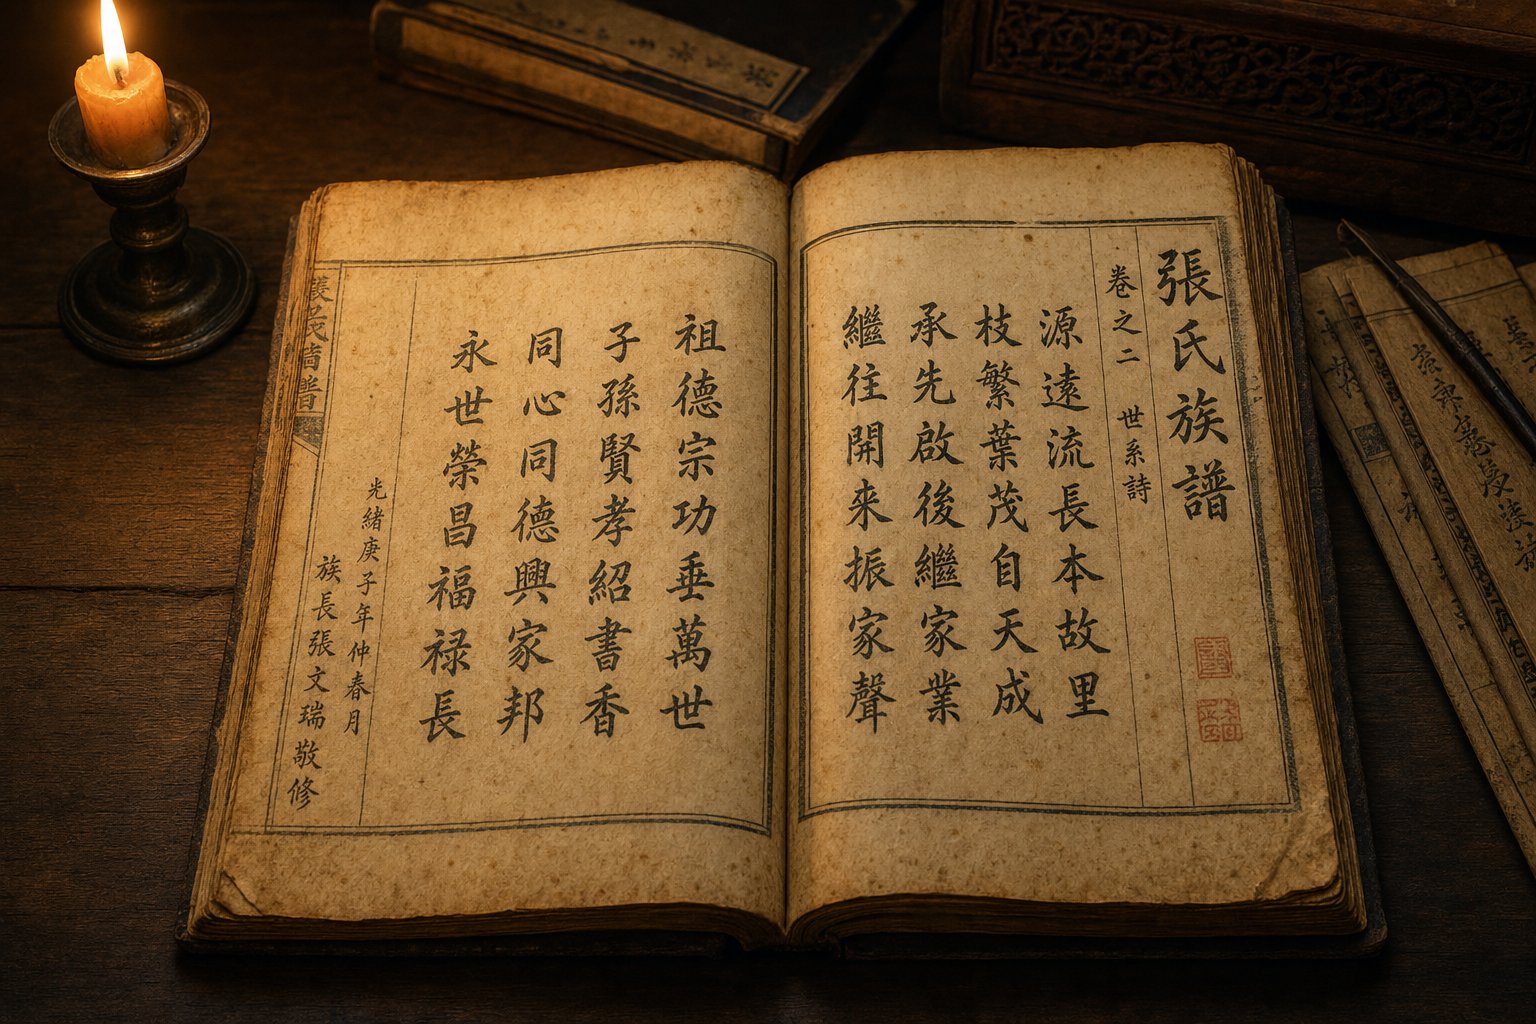 張氏族譜
卷之二 世系詩
源遠流長本故里
枝繁葉茂自天成
承先啟後繼家業
繼往開來振家聲
祖德宗功垂萬世
子孫賢孝紹書香
同心同德興家邦
永世榮昌福祿長
光緒庚子年仲春月
族長張文瑞敬修